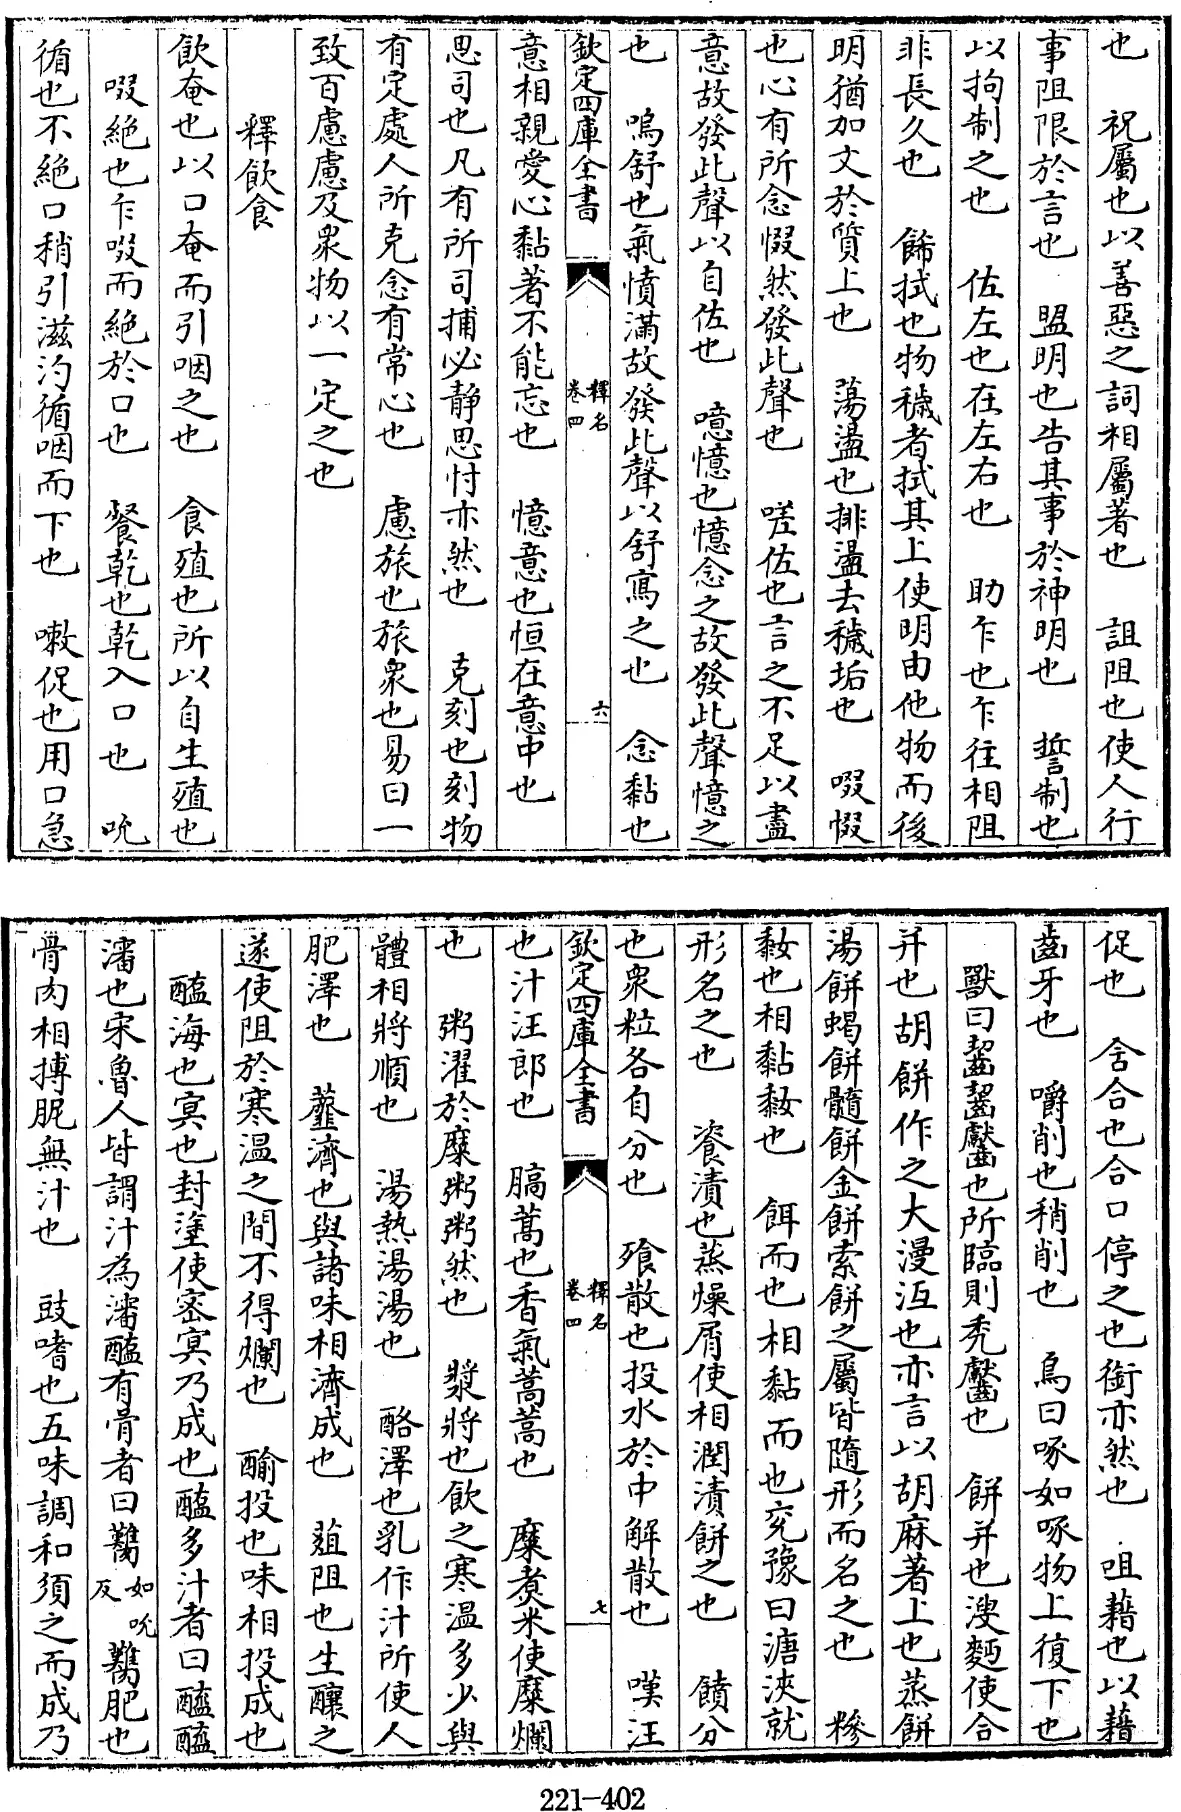 也　祝屬也以善惡之詞相屬著也　詛阻也使人行
事阻限於言也　盟明也告其事於神明也　誓制也
以拘制之也　佐左也在左右也　助乍也乍往相阻
非長久也　飾拭也物穢者拭其上使明由他物而後
明猶加文於質上也　蕩盪也排盪去穢垢也　啜惙
也心有所念惙然發此聲也　嗟佐也言之不足以盡
意故發此聲以自佐也　噫憶也憶念之故發此聲憶之
也　嗚舒也氣憤滿故發此聲以舒寫之也　念黏也
欽定四庫全書　釋名卷四　六
意相親愛心黏著不能忘也　憶意也恒在意中也
思司也凡有所司捕必靜思忖亦然也　克刻也刻物
有定處人所克念有常心也　慮旅也旅衆也易曰一
致百慮慮及衆物以一定之也
釋飲食
飲奄也以口奄而引咽之也　食殖也所以自生殖也
啜絶也乍啜而絶於口也　餐乾也乾入口也　吮
循也不絶口稍引滋汋循咽而下也　嗽促也用口急
促也　含合也合口停之也銜亦然也　咀藉也以藉
齒牙也　嚼削也稍削也　鳥曰啄如啄物上復下也
獸曰齧齧齾也所臨則禿齾也　餅并也溲麪使合
并也胡餅作之大漫沍也亦言以胡麻著上也蒸餅
湯餅蝎餅髓餅金餅索餅之屬皆隨形而名之也　糝
黏也相黏敄也　餌而也相黏而也兖豫曰溏浹就
形名之也　餈漬也蒸燥屑使相潤漬餅之也　饙分
也衆粒各自分也　飱散也投水於中解散也　嘆汪
欽定四庫全書　釋名卷四　七
也汁汪郎也　膈蒿也香氣蒿蒿也　糜煑米使糜爛
也　粥濯於糜粥粥然也　漿將也飲之寒温多少與
體相將順也　湯熱湯湯也　酪澤也乳作汁所使人
肥澤也　虀濟也與諸味相濟成也　葅阻也生釀之
遂使阻於寒温之間不得爛也　䤅投也味相投成也
醢海也冥也封塗使密冥乃成也醢多汁者曰醯醯
瀋也宋魯人皆謂汁為瀋醢有骨者曰臡如吮反臡肥也
骨肉相搏胒無汁也　豉嗜也五味調和須之而成乃
221-402